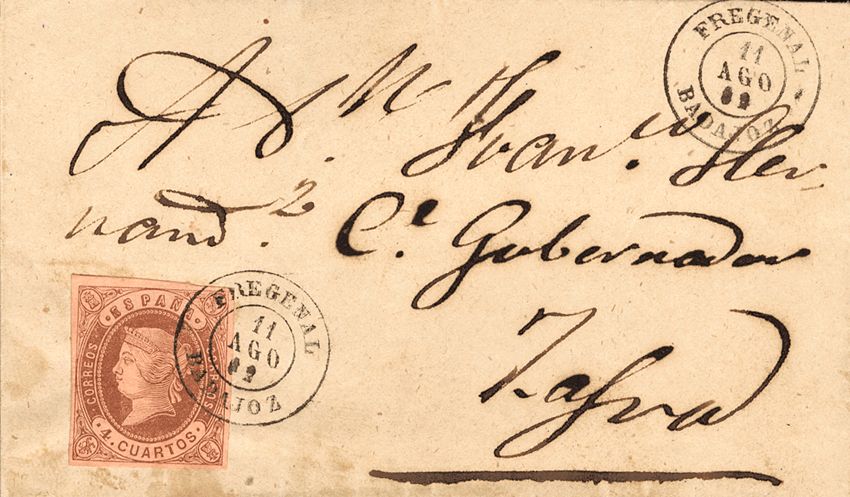 FREGENAL
11
AGO
62
BADAJOZ
A D. Fran.co Her
nand.z C.l Gobernador
Zafra
ESPAÑA
CORREOS
4. CUARTOS.
FREGENAL
11
AGO
62
BADAJOZ